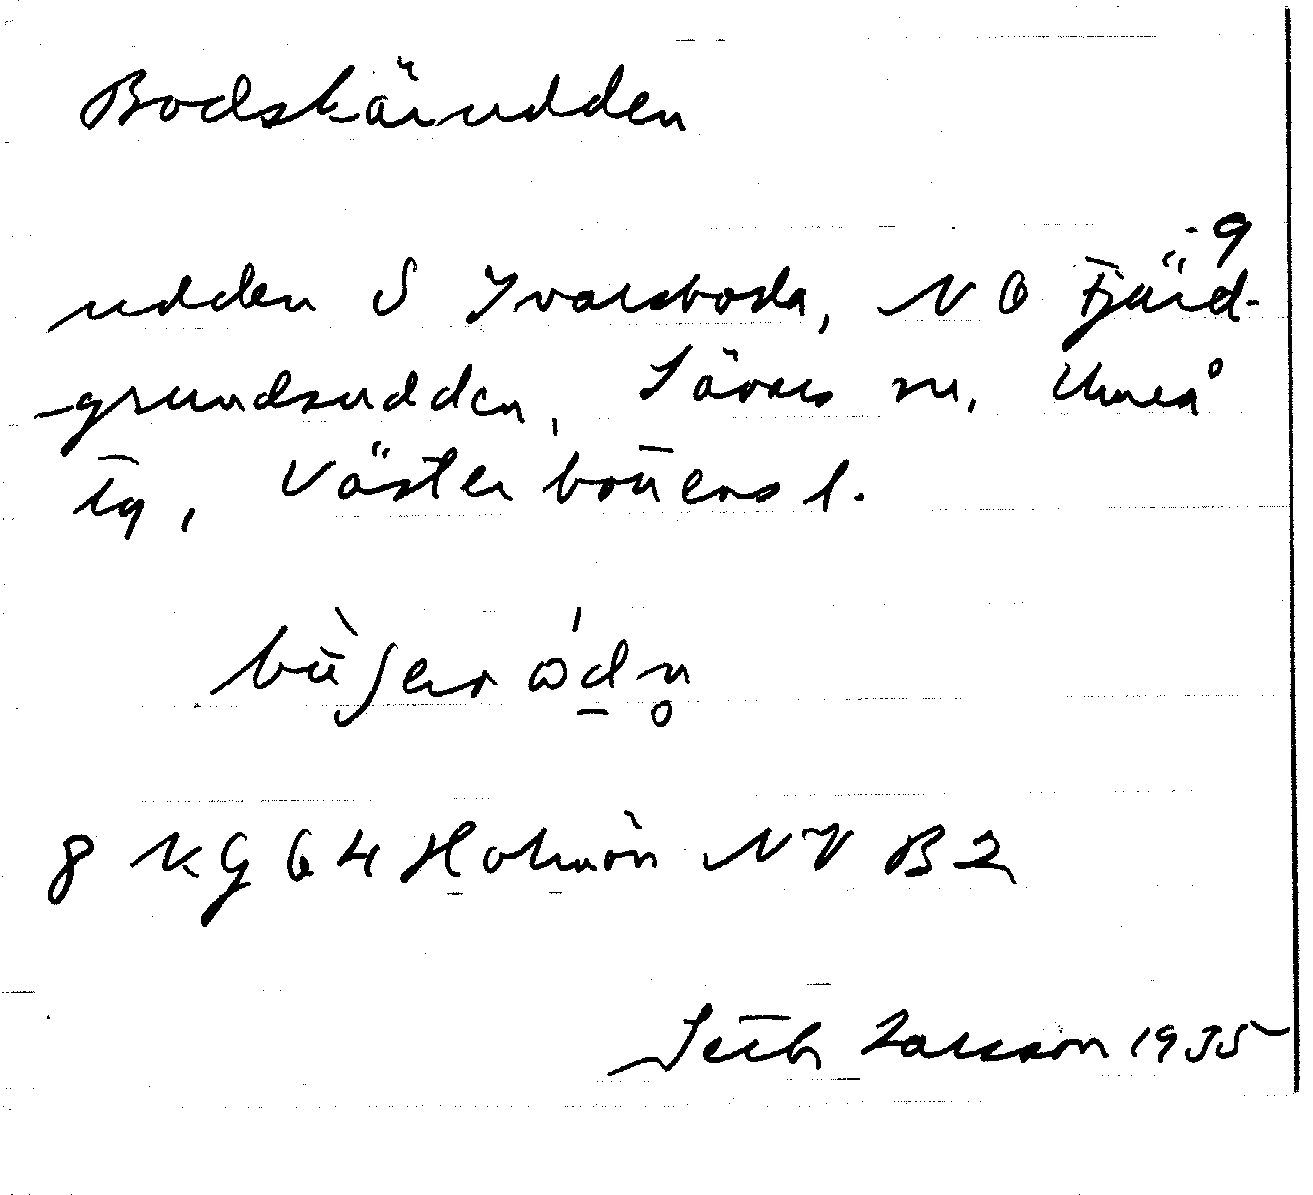 Bodskärudden
-9
udden S Ivarsboda, NO Fjärd-
-grundsudden, Sävars sn, Umeå
tg, Västerbottens l.
8 KG 64 Holmön NV B2
Seth Larsson 1935